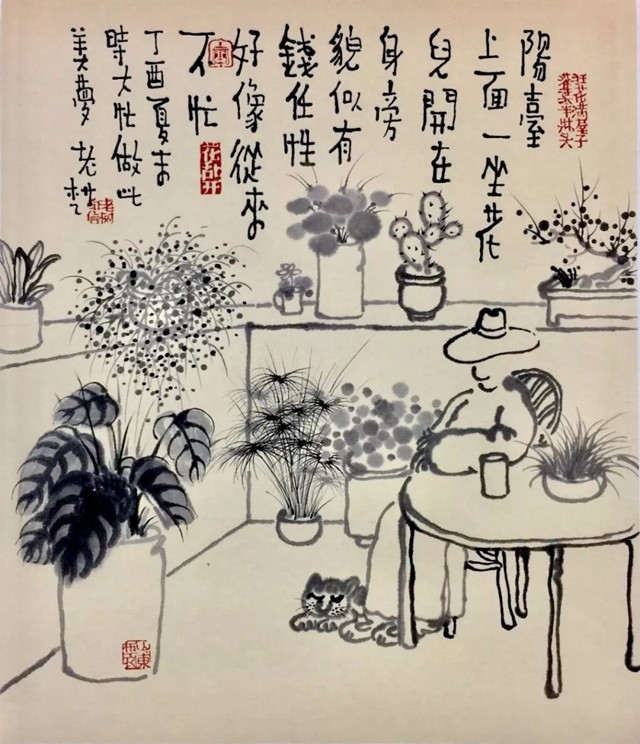 陽臺
上面一坐花
兒開在
身旁
貌似有
錢任性
好像從來
不忙
花乱开
丁酉夏末
時大忙做此
美夢 老樹